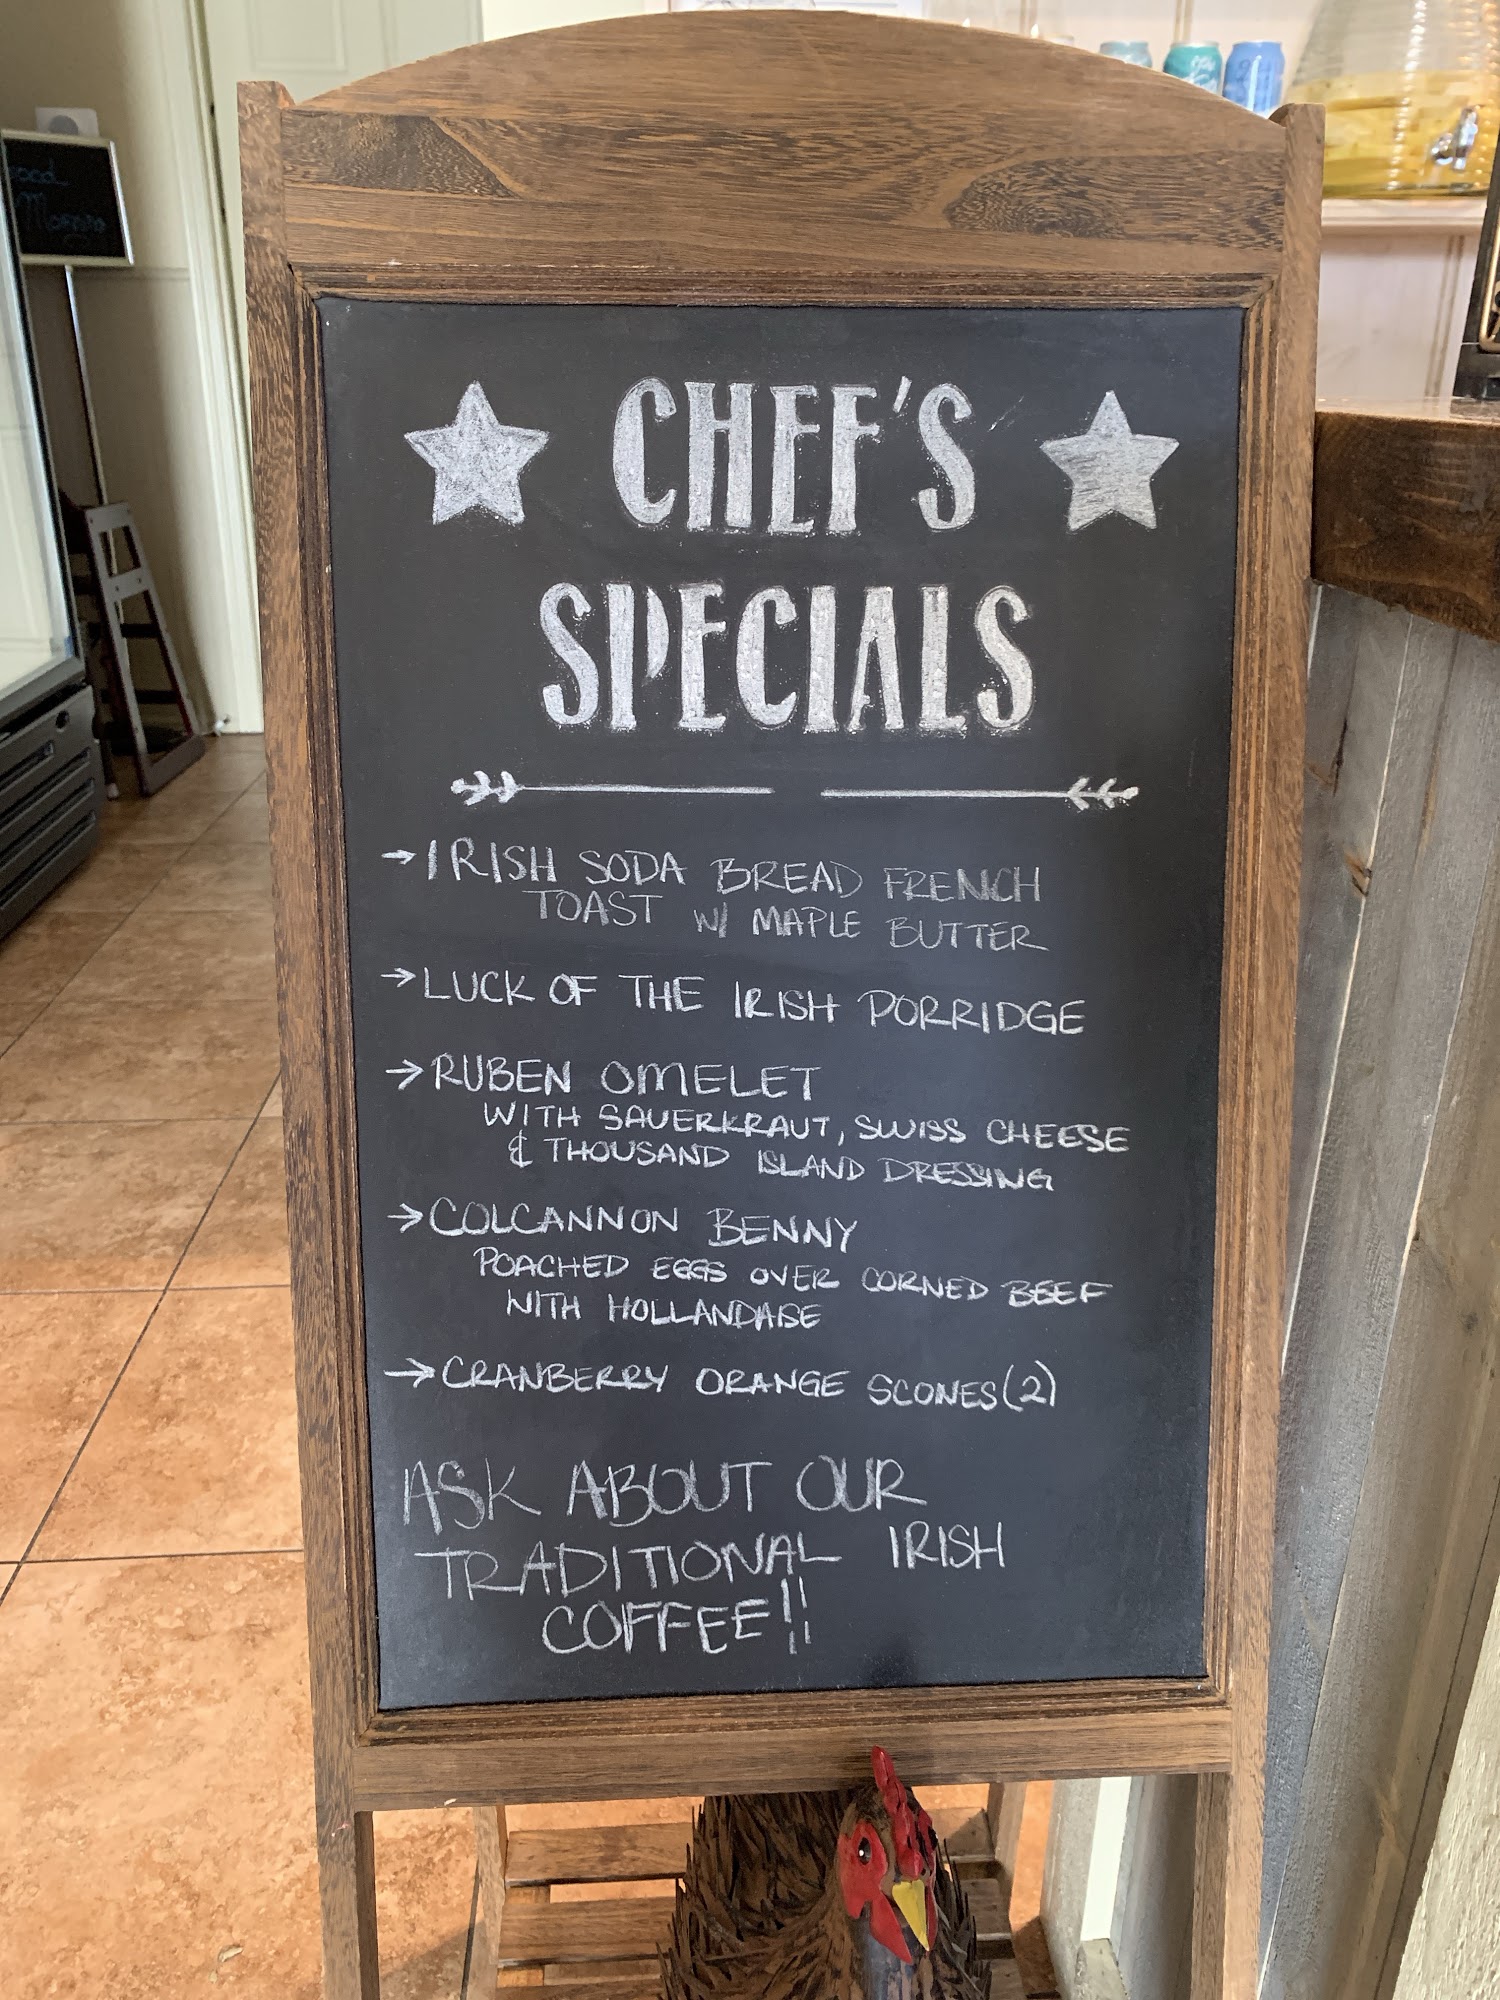 CHEF'S
SPECIALS
→IRISH SODA BREAD FRENCH
TOAST W/ MAPLE BUTTER
→LUCK OF THE IRISH PORRIDGE
→RUBEN OMELET
WITH SAUERKRAUT, SWISS CHEESE
& THOUSAND ISLAND DRESSING
→COLCANNON BENNY
POACHED EGGS OVER CORNED BEEF
WITH HOLLANDAISE
→CRANBERRY ORANGE SCONES(2)
ASK ABOUT OUR
TRADITIONAL IRISH
COFFEE!!